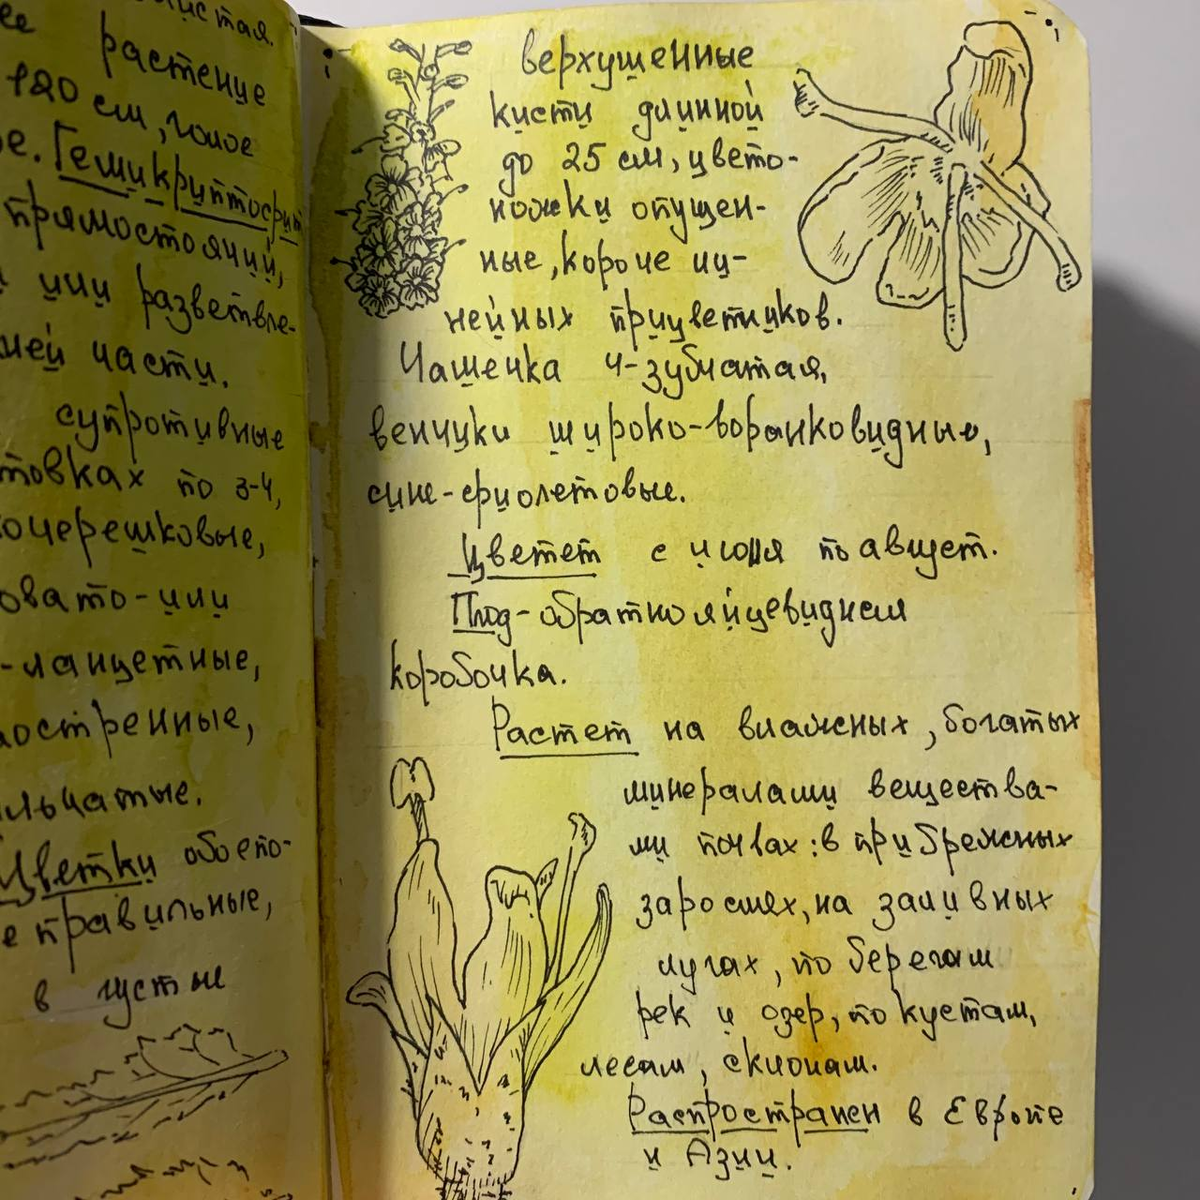 растение
120 см, голое
Гемикриптофит
прямостоячий,
или разветвле-
ней части.
супротивные
товках по 3-4,
кочерешковые,
овато-или
-ланцетные,
аостренные,
ильчатые.
Цветки обоепо-
е правильные,
в густые
верхушенные
кисти длинной
до 25 см, цвето-
ножки опущен-
ные, короче ли-
нейных прицветников.
Чашечка 4-зубчатая,
венчики широко-воранковидные,
сине-фиолетовые.
Цветет с июня по август.
Плод-обратнояйцевидная
коробочка.
Растет на влажных, богатых
минералами вещества-
ми почвах: в прибрежных
зарослях, на заливных
лугах, по берегам
рек и озер, по кустам,
лесам, склонам.
Распространен в Европе
и Азии.